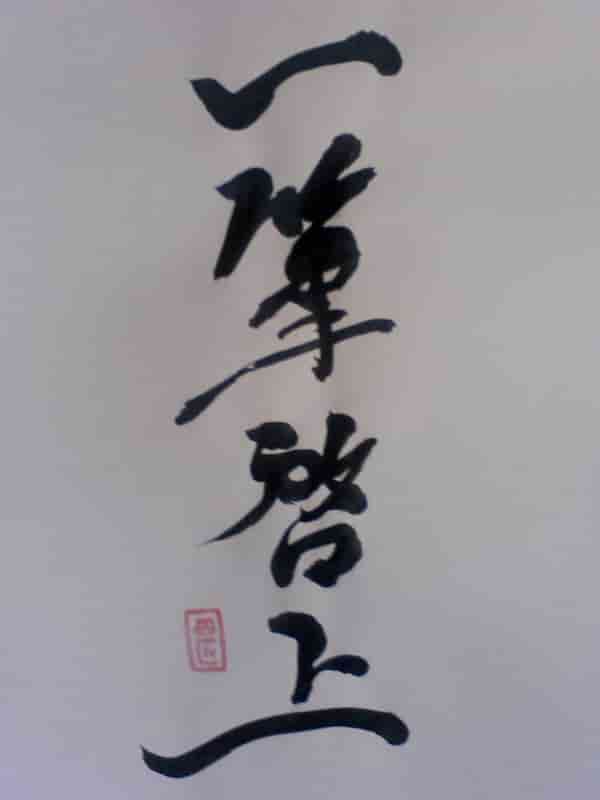 一筆啓上